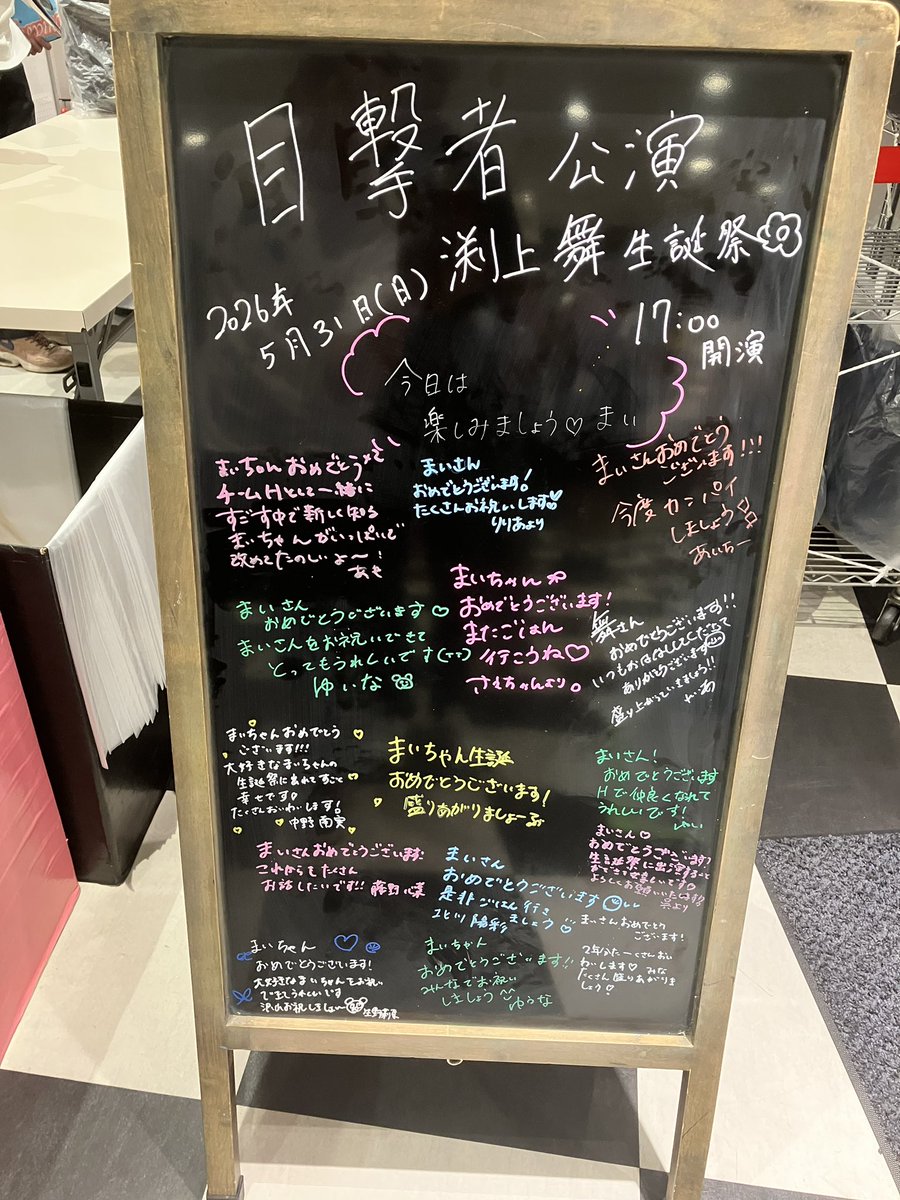 目撃者公演
渕上舞生誕祭
2026年
5月31日(日)
17:00
開演
今日は
楽しみましょう♡まい
まいちゃんおめでとう
チームHとして一緒に
すごす中で新しく知る
まいちゃんがいっぱいで
改めてたのしいよ〜!
まいさん
おめでとうございます!
たくさんお祝いします
りりあより
まいさんおめでとう
ございます!!!
今度カンパイ
しましょう
あいちー
まいさん
おめでとうございます♡
まいさんをお祝いできて
とってもうれしいです
ゆいな
まいちゃん
おめでとうございます!
またごはん
行こうね♡
さえちゃんより。
舞さん
おめでとうございます!!
いつもお話ししてくださって
ありがとうございます
盛り上がっていきましょう!!
まいちゃんおめでとう
ございます!!!
大好きなまいちゃんの
生誕祭に出れてすごく
幸せです
たくさんおいわいします!
中野南実
まいちゃん生誕
おめでとうございます!
盛りあがりましょーぶ
まいさん!
おめでとうございます
Hで仲良くなれて
うれしいです!
まいさんおめでとうございます
これからもたくさん
お話したいです!!
まいさん
おめでとうございます
是非ごはん行き
ましょう
まいさん♡
おめでとうございます
生誕祭に出演すること
よろしくお願いいたします
まいさんおめでとう
ございます!
2年分たーくさんおい
わいします♡みな
たくさん盛りあがりま
しょう!
まいちゃん
おめでとうございます!
大好きなまいちゃんをお祝い
できてうれしいです
まいちゃん
おめでとうございます!!
みんなでお祝い
しましょう
ゆうな